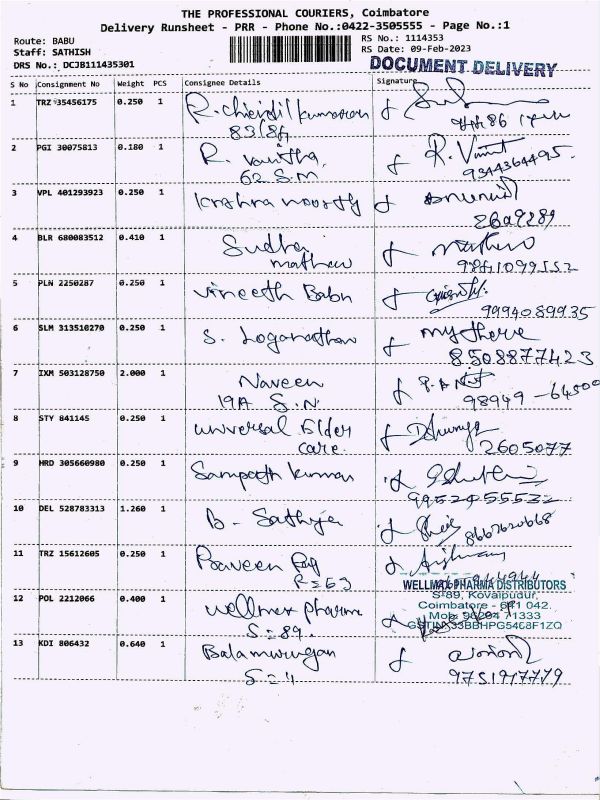 THE PROFESSIONAL COURIERS, Coimbatore
Delivery Runsheet - PRR - Phone No.:0422-3505555 - Page No.:1
Route: BABU
RS No.: 1114353
Staff: SATHISH
RS Date: 09-Feb-2023
DRS No.: DCJB111435301
DOCUMENT DELIVERY
S No Consignment No Weight PCS Consignee Details Signature
1 TRZ 35456175 0.250 1
83/84
2 PGI 30075813 0.180 1 R. Vanitha, R. Vinit
62 S.M 9344364495.
3 VPL 401293923 0.250 1 Krishna moorthy
2609289
4 BLR 680083512 0.410 1 Sudha
mathew 9841099552
5 PLN 2250287 0.250 1 vineeth Babu
9994089935
6 SLM 313510270 0.250 1 S. Loganathan
8508877423
7 IXM 503128750 2.000 1 Naveen
19A S.N. 98949-64500
8 STY 841145 0.250 1 universal Elder
care. 2605077
9 HRD 305660980 0.250 1 Sampath kumar
9952455532
10 DEL 528783313 1.260 1 B - Sathya
8667620668
11 TRZ 15612605 0.250 1 Praveen Raj
R=63
WELLMAX PHARMA DISTRIBUTORS
S-89, Kovaipudur,
12 POL 2212066 0.400 1 wellmax pharma
Coimbatore - 641 042.
S=89.
13 KDI 806432 0.640 1 Balamurugan
S=4 9751917779